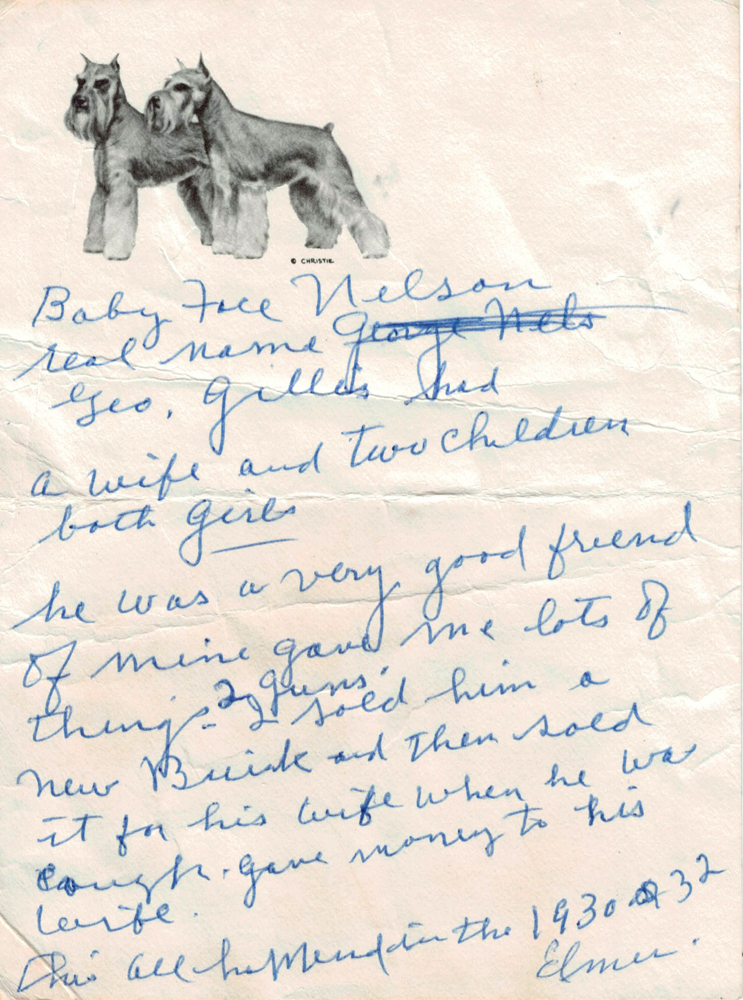 © CHRISTIE
Baby Face Nelson
real name George Nels
Geo. Gillas had
a wife and two children
both girls
he was a very good friend
of mine gave me lots of
things 2 guns. I sold him a
new Buick and then sold
it for his wife when he was
cough. gave money to his
wife.
This all happend in the 1930 or 32
Elmer.